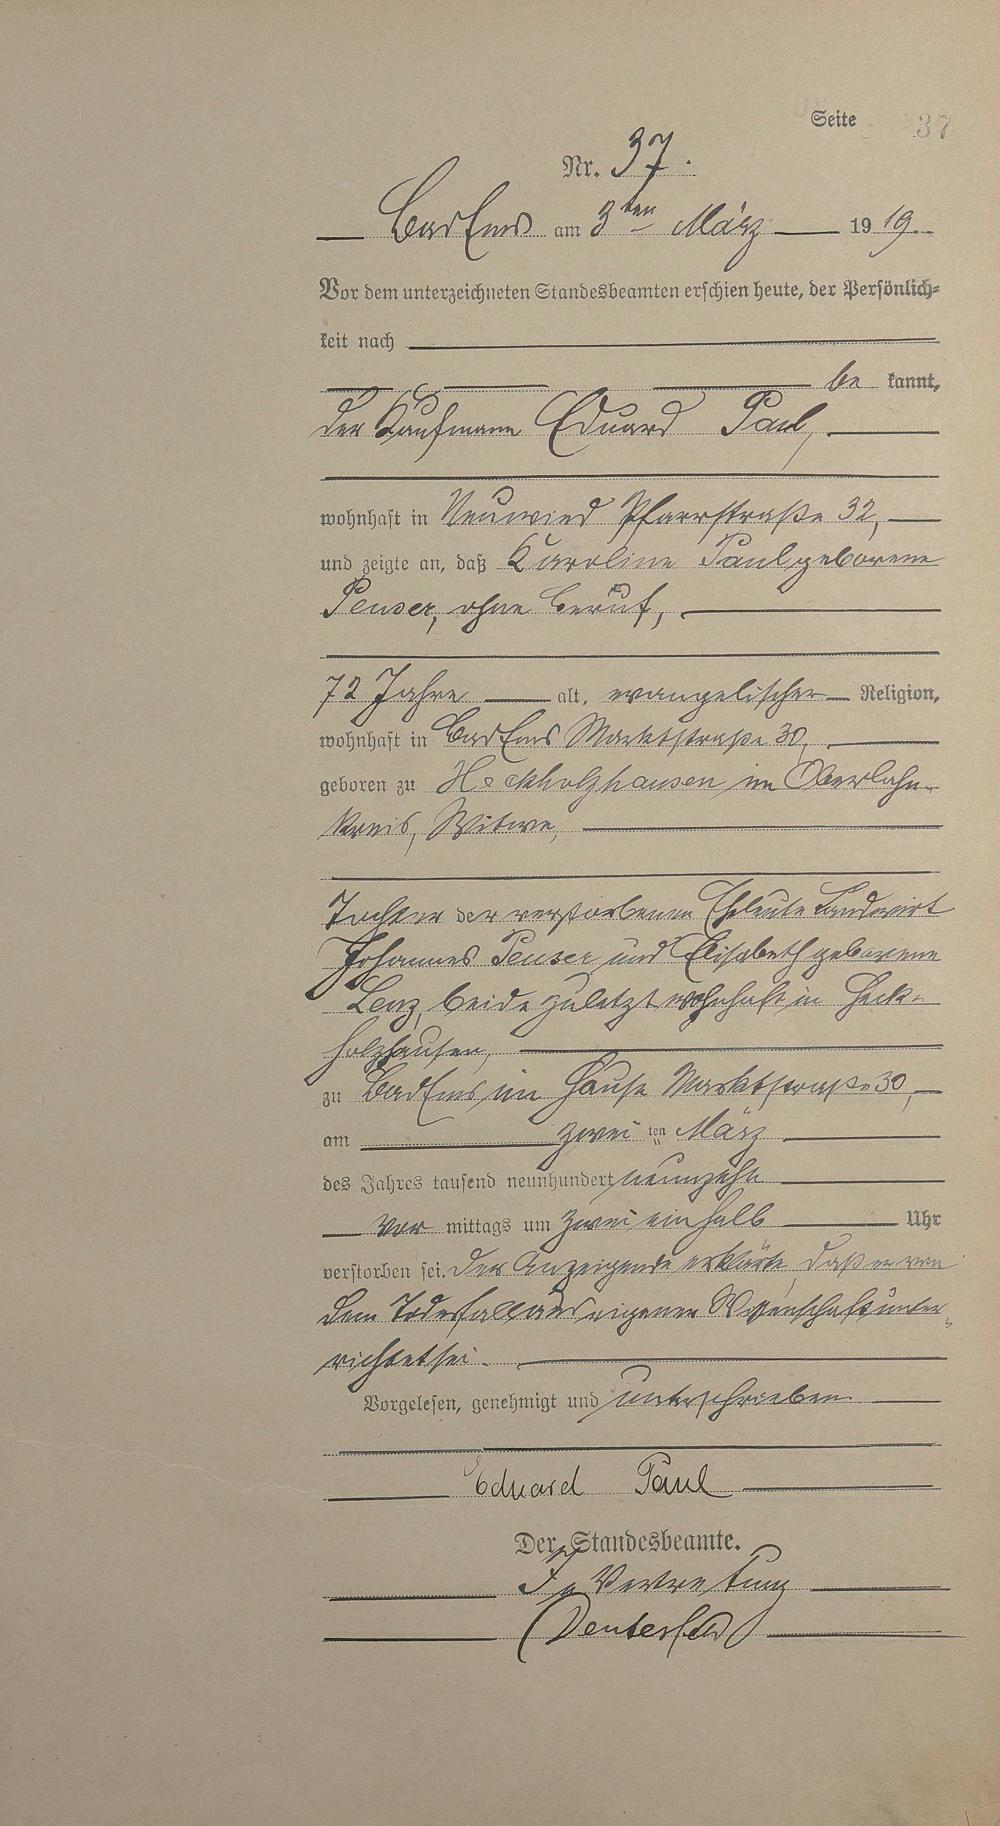 Seite 37
Nr. 37.
Bad Ems am 3ten März 1919.
Vor dem unterzeichneten Standesbeamten erschien heute, der Persönlich-
keit nach
be kannt,
der Kaufmann Eduard Paul,
wohnhaft in Neuwied Pfarrstraße 32,
und zeigte an, daß Karoline Paul geborene
Penser, ohne Beruf,
72 Jahre alt, evangelischer Religion,
wohnhaft in Bad Ems Marktstraße 30,
geboren zu Heckholzhausen im Oberlahn-
kreis, Witwe,
Tochter der verstorbenen Eheleute Landwirt
Johannes Penser und Elisabeth geborene
Lenz, beide zuletzt wohnhaft in Heck-
holzhausen,
zu Bad Ems im Hause Marktstraße 30,
am zwei ten März
des Jahres tausend neunhundert neunzehn
Vor mittags um zwei ein halb Uhr
verstorben sei. Der Anzeigende erklärte, daß er von
dem Todesfall aus eigener Wissenschaft unter-
richtet sei.
Vorgelesen, genehmigt und unterschrieben
Eduard Paul
Der Standesbeamte.
In Vertretung